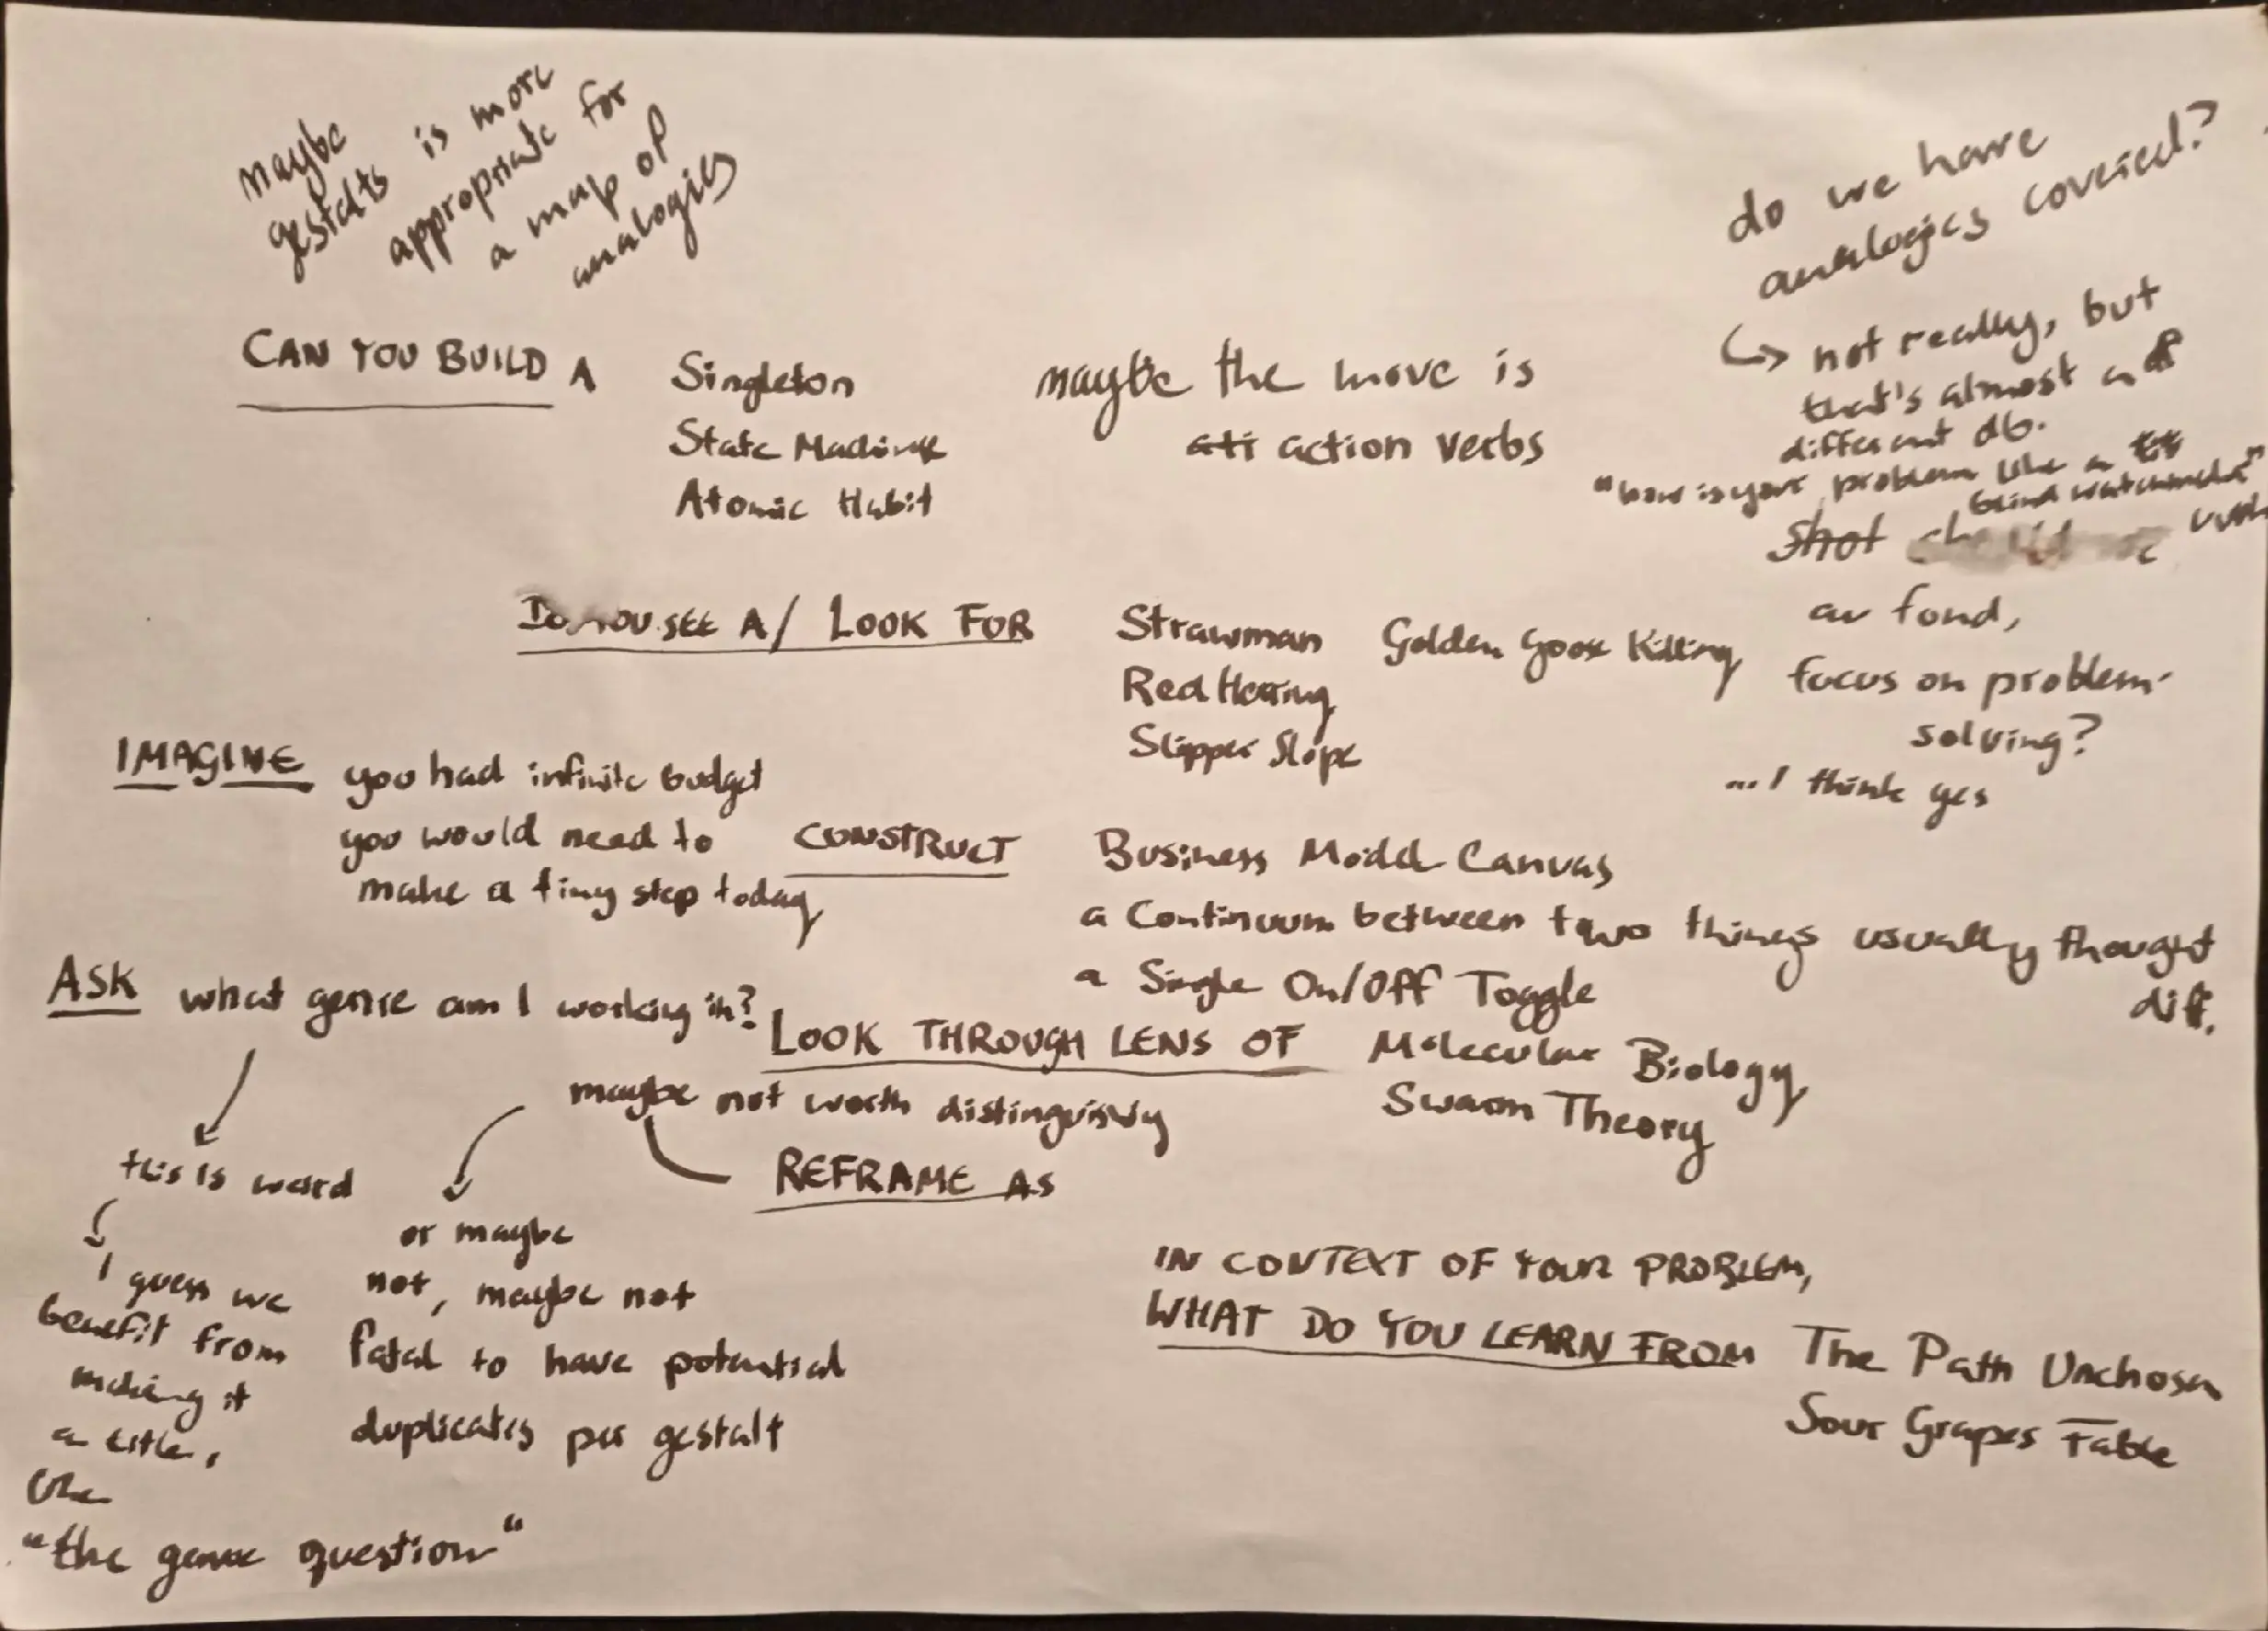 maybe
gestalts is more
appropriate for
a map of
analogies
do we have
analogies covered?
↳ not really, but
that's almost a
different db.
"how is your problem like a
blind watchmaker"
CAN YOU BUILD A
Singleton
State Machine
Atomic Habit
maybe the move is
action verbs
shot
au fond,
focus on problem-
solving?
... I think yes
DO YOU SEE A / LOOK FOR
Strawman
Golden Goose Killing
Red Herring
Slipper Slope
IMAGINE
you had infinite budget
you would need to
make a tiny step today
CONSTRUCT
Business Model Canvas
a Continuum between two things usually thought
diff.
a Single On/Off Toggle
ASK what genre am I working in?
LOOK THROUGH LENS OF
Molecular Biology
Swarm Theory
maybe not worth distinguishing
REFRAME AS
this is weird
I guess we
benefit from
making it
a title,
like
"the genre question"
or maybe
not, maybe not
fatal to have potential
duplicates per gestalt
IN CONTEXT OF YOUR PROBLEM,
WHAT DO YOU LEARN FROM
The Path Unchosen
Sour Grapes Fable